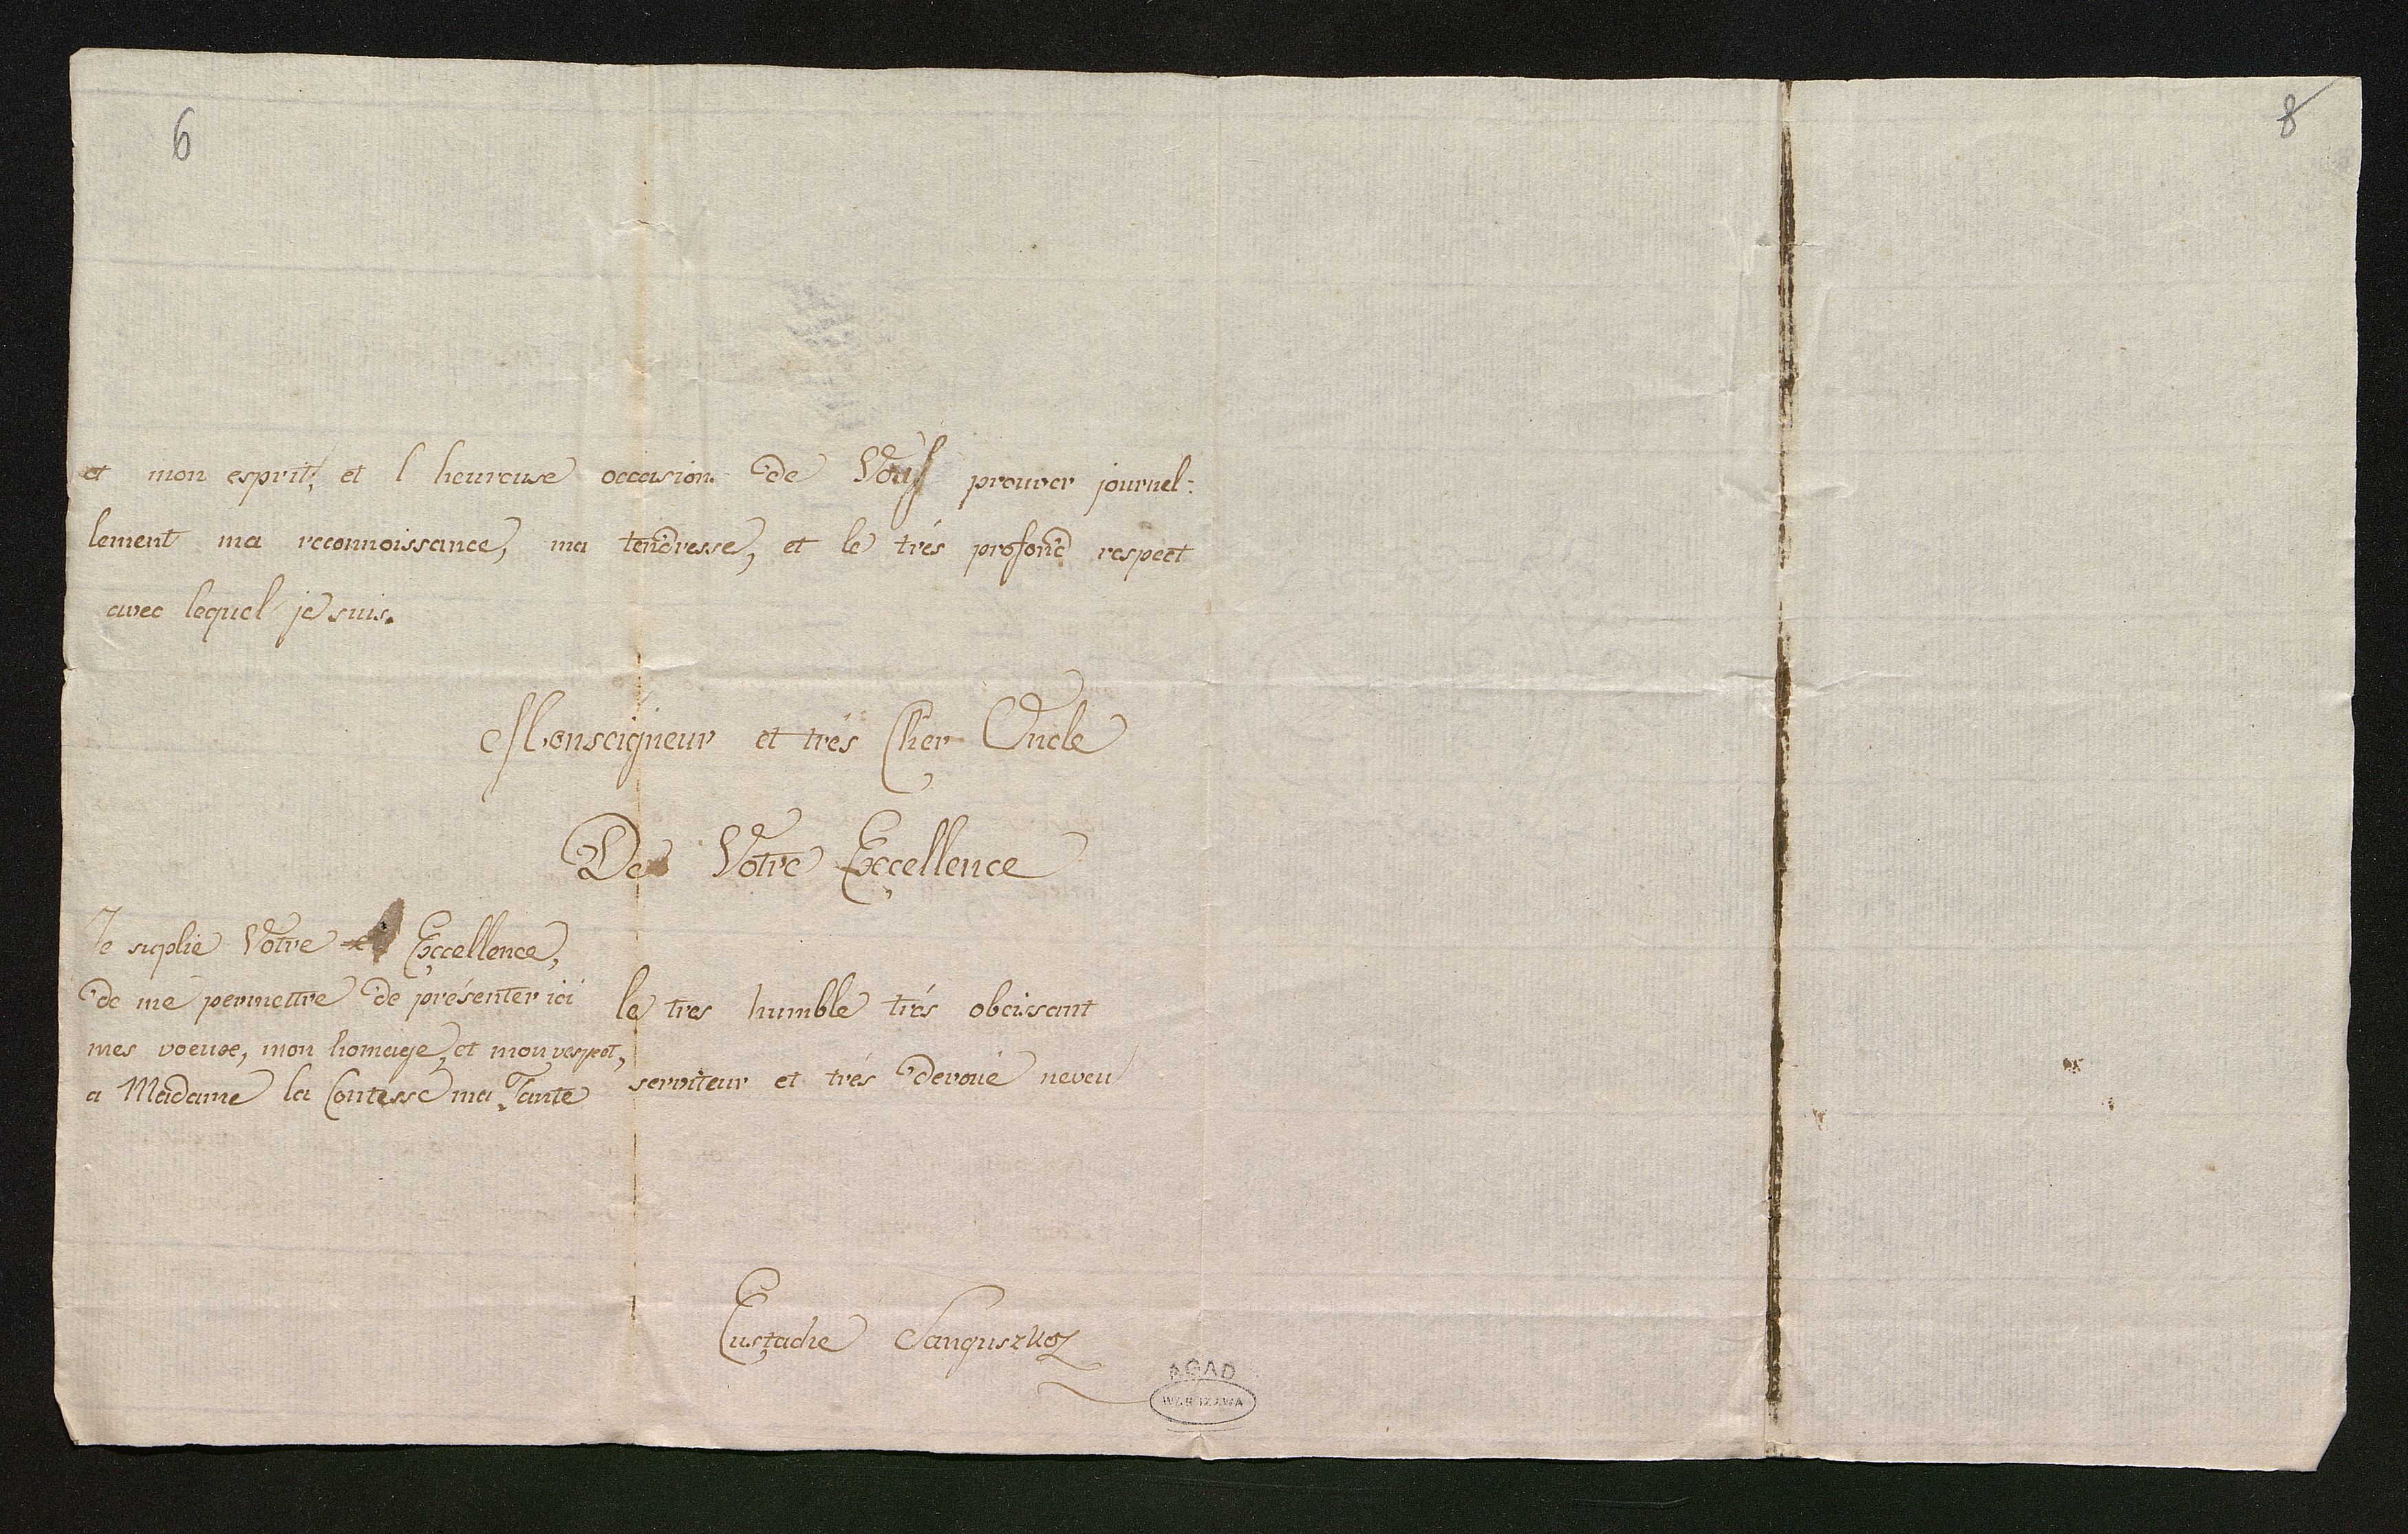 6
8
et mon esprit, et l heureuse occasion de Vous prouver journel:
lement ma reconnoissance, ma tendresse, et le trés profond respect
avec lequel je suis.
Monseigneur et trés Cher Oncle
De Votre Exçellence
Je suplie Votre Exçcellence,
de me permettre de présenter ici
mes voeuxe, mon homage, et mon respect,
a Madame la Contesse ma Tante
le tres humble trés obeissant
serviteur et trés devoué neveu
Eustache Sanguszko
AGAD
WARSZAWA